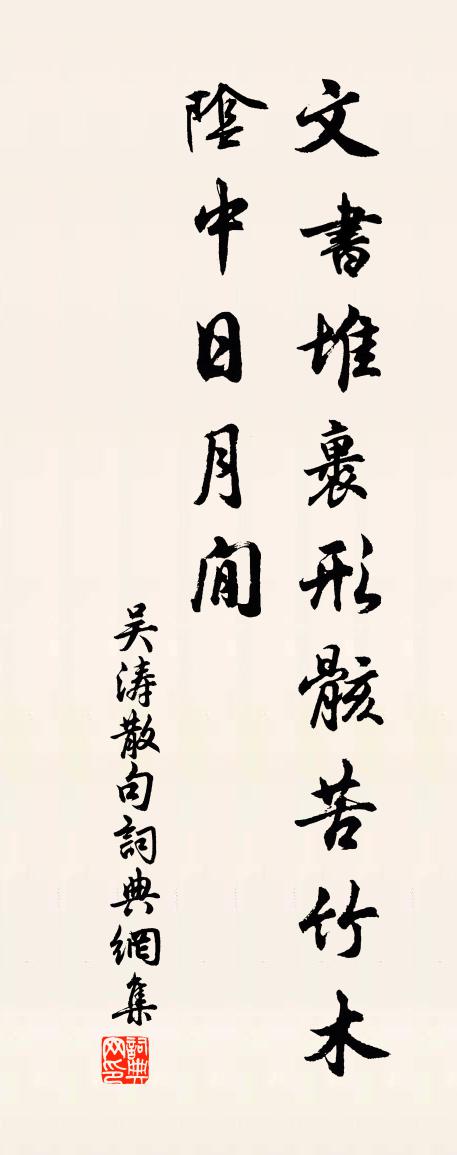 文書堆裏形骸苦竹木
陰中日月閒
吴涛散句詞典網集
詞典网印